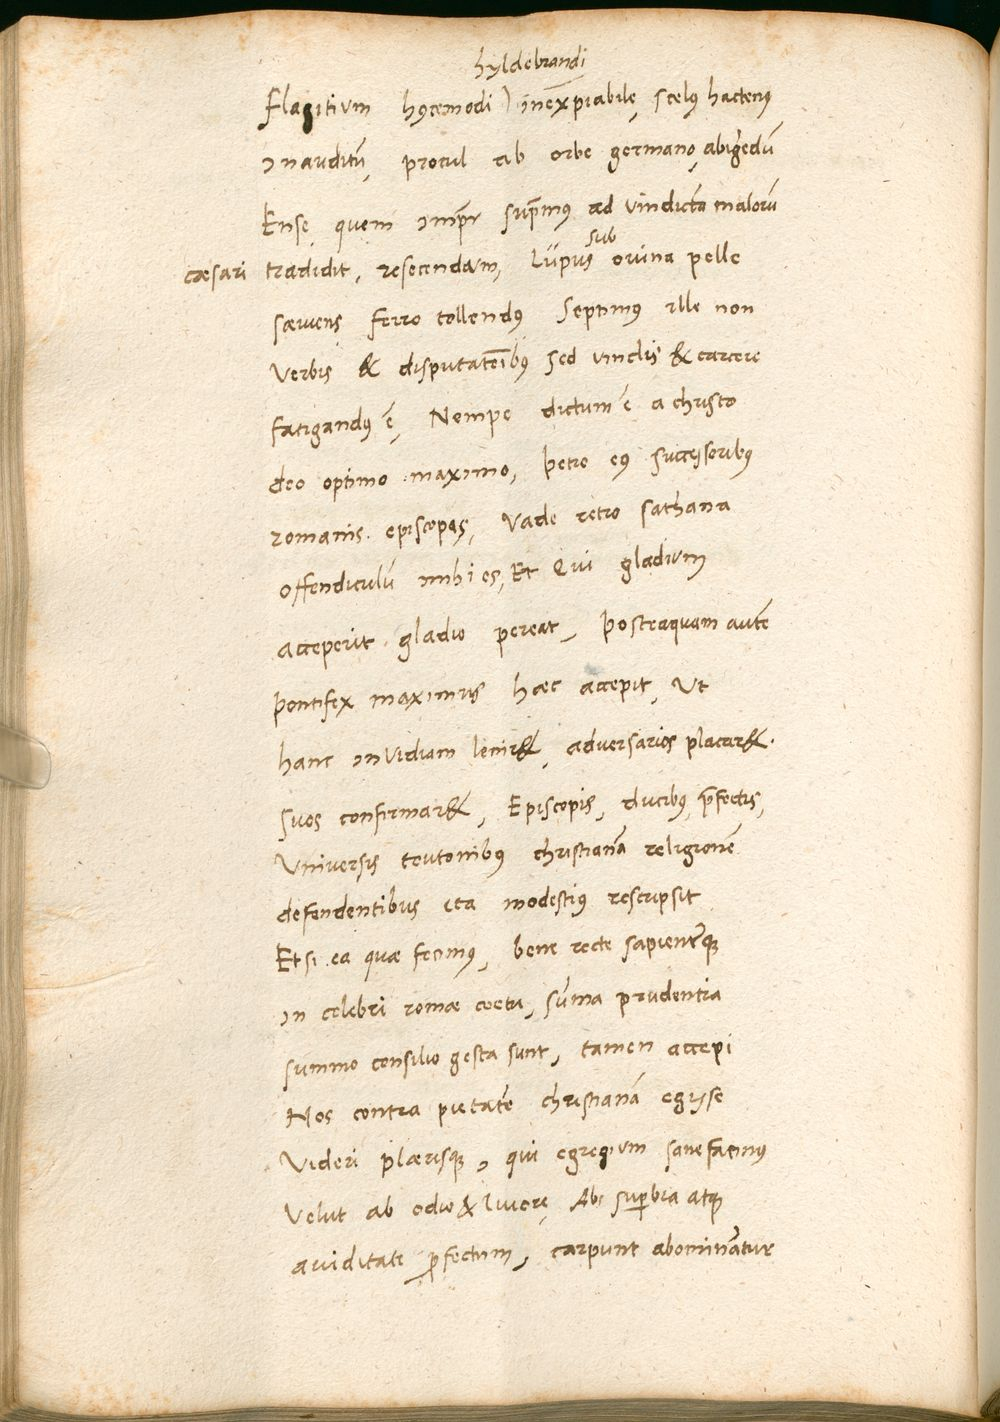 hyldebrandi
Flagitium hꝰcemodi ) inexpiabile, scelꝰ hactenꝰ
inauditū, procul ab orbe germano, abigēdū
Ense quem imp̄r sup̄mꝰ ad vindictā malorū
cæsari tradidit, resecendam, Lupus sub ovina pelle
sæuiens ferro tollendꝰ Septimus ille non
Verbis & disputatōibꝰ sed vinclis & carcere
fatigandꝰ ē, Nempe dictum ē a christo
deo optimo maximo, petro eiꝰ successoribꝰ
romanis episcopis, Vade retro sathana
offendiculū mihi es, Et Qui gladium
acceperit gladio pereat, postea quam autē
pontifex maximus hæc accepit, Ut
hanc inVidiam lenir&, adversarios placar&.
suos confirmar&, Episcopis, ducibꝰ, p̄fectis,
Universis teutonibꝰ christianā religionē
defendentibus ita modestiꝰ rescripsit
Etsi ea quæ fecimꝰ, bene recte sapienterqꝫ
in celebri romæ coetu, sūma prudentia
summo consilio gesta sunt, tamen accepi
Nos contra pietatē christianā egisse
Videri plærisqꝫ, qui egregium sane facinꝰ
Velut ab odio & liuore, Ab suꝑbia atqꝫ
auiditate ꝓfectum, carpunt abominātur